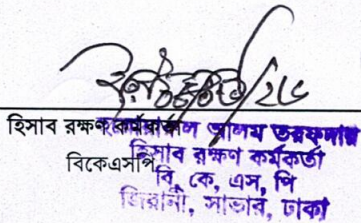 হিসাব রক্ষণ কর্মকর্তা
আলম তরফদার
বিকেএসপি
হিসাব রক্ষণ কর্মকর্তা
বি, কে, এস, পি
জিরানী, সাভার, ঢাকা